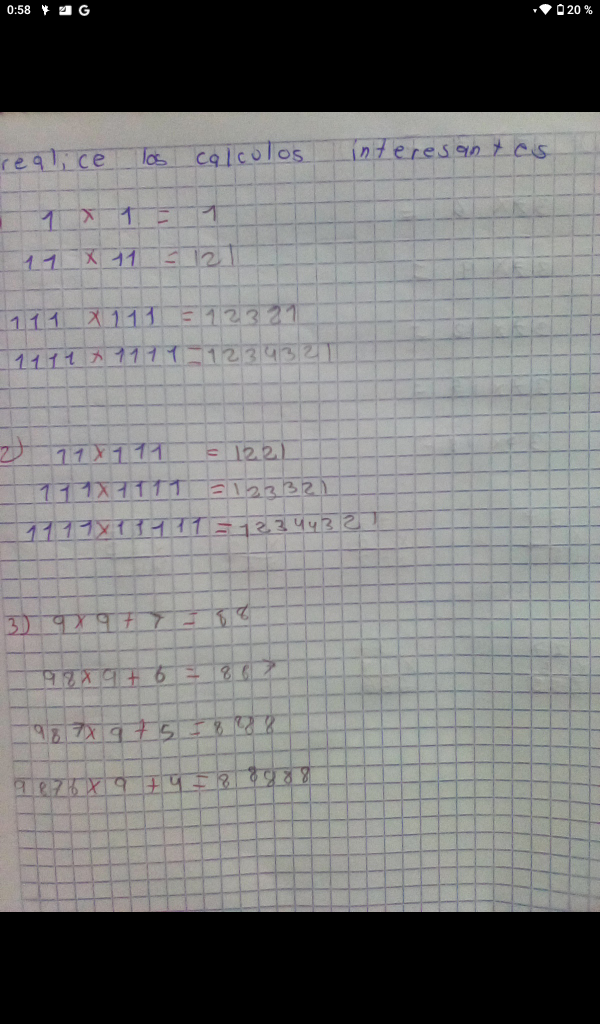 0:58 20 %
realice los calculos interesantes
1 x 1 = 1
11 x 11 = 121
111 x 111 = 12321
1111 x 1111 = 1234321
2) 11 x 111 = 1221
111 x 1111 = 123321
1111 x 11111 = 12344321
3) 9 x 9 + 7 = 88
98 x 9 + 6 = 887
987 x 9 + 5 = 8888
9876 x 9 + 4 = 88888